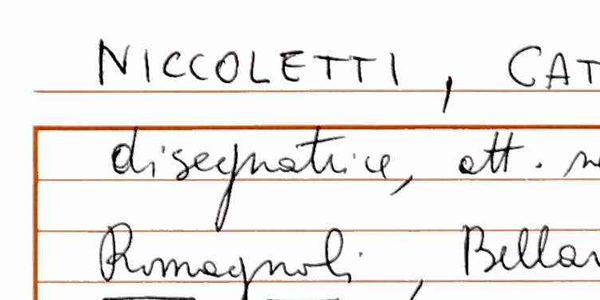 NICCOLETTI, CAT
disegnatrice, att.
Romagnoli, Bellar